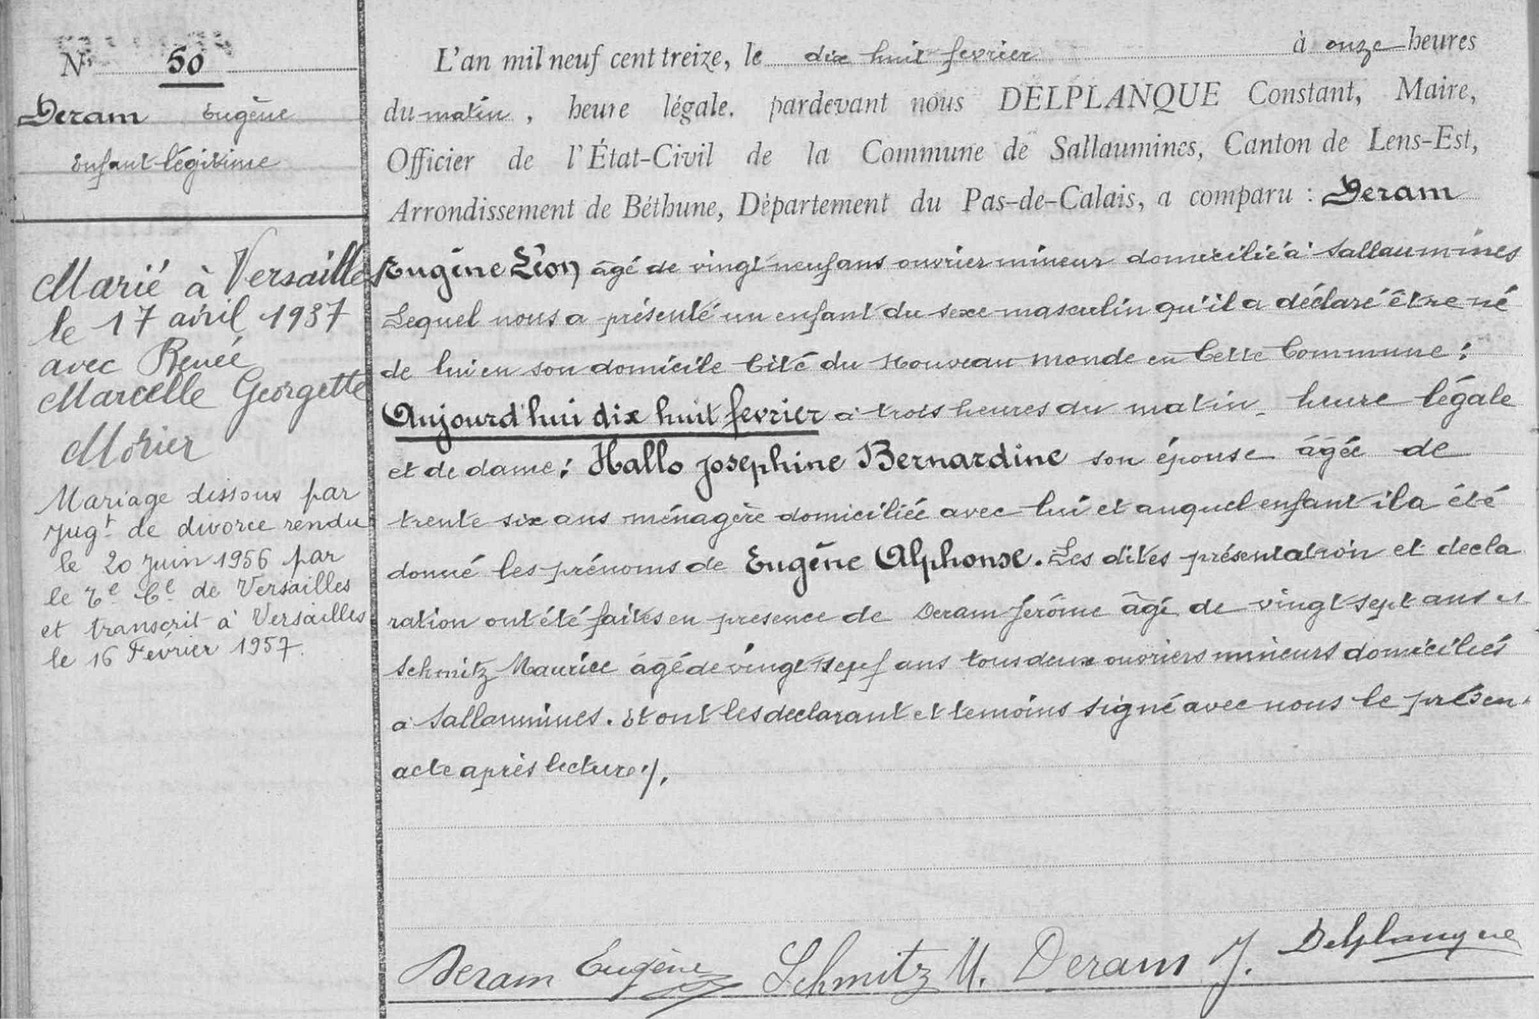 N° 50
Deram Eugène
Enfant légitime
Marié à Versailles
le 17 avril 1937
avec Renée
Marcelle Georgette
Morier
Mariage dissous par
jugt de divorce rendu
le 20 juin 1956 par
le Te Cl de Versailles
et transcrit à Versailles
le 16 Février 1957.
L'an mil neuf cent treize, le dix huit fevrier à onze heures
du matin, heure légale. pardevant nous DELPLANQUE Constant, Maire,
Officier de l'État-Civil de la Commune de Sallaumines, Canton de Lens-Est,
Arrondissement de Béthune, Département du Pas-de-Calais, a comparu : Deram
Eugène Léon âgé de vingt neuf ans ouvrier mineur domicilié à Sallaumines
Lequel nous a présenté un enfant du sexe masculin qu'il a déclaré être né
de lui en son domicile Cité du Nouveau Monde en Cette Commune :
Aujourd'hui dix huit fevrier à trois heures du matin - heure légale
et de dame : Hallo Josephine Bernardine son épouse âgée de
trente six ans ménagère domiciliée avec lui et auquel enfant il a été
donné les prénoms de Eugène Alphonse. Les dites présentation et decla
ration ont été faites en presence de Deram Jérôme âgé de vingt sept ans et
Schmitz Maurice âgé de vingt sept ans tous deux ouvriers mineurs domiciliés
à Sallaumines. Et ont les declarant et temoins signé avec nous le présen
acte après lecture ./.
Deram Eugène Schmitz M. Deram J. Delplanque